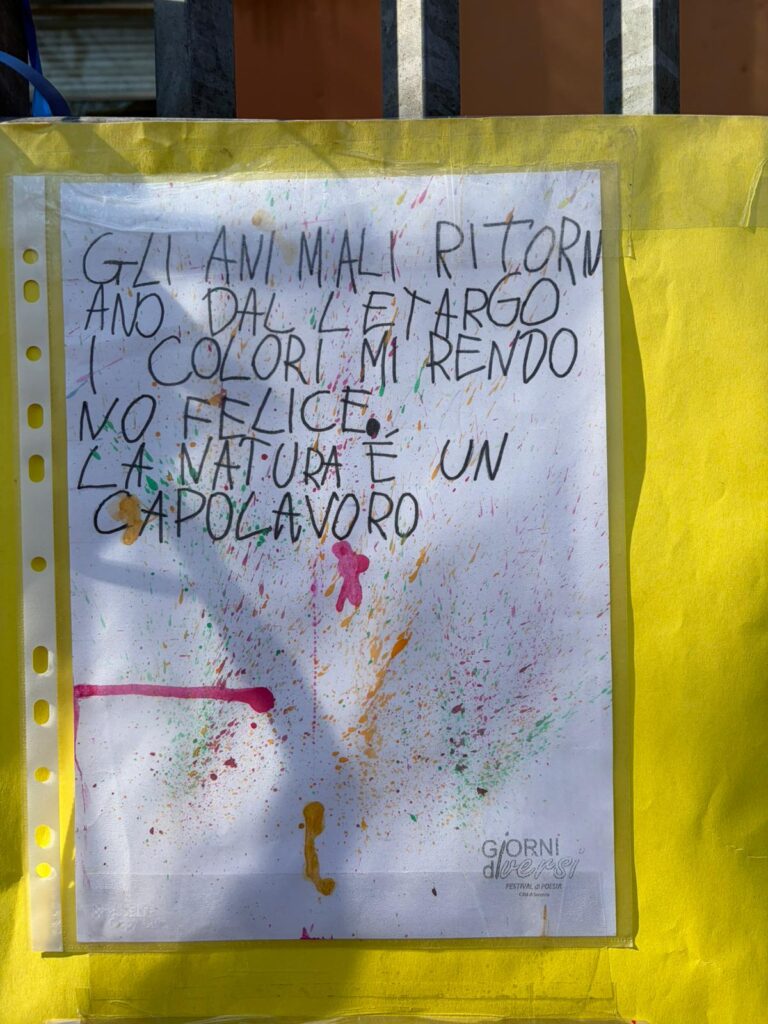 GLI ANIMALI RITORN
ANO DAL LETARGO
I COLORI MI RENDO
NO FELICE.
LA NATURA É UN
CAPOLAVORO
GIORNI
diversi
FESTIVAL di POESIA